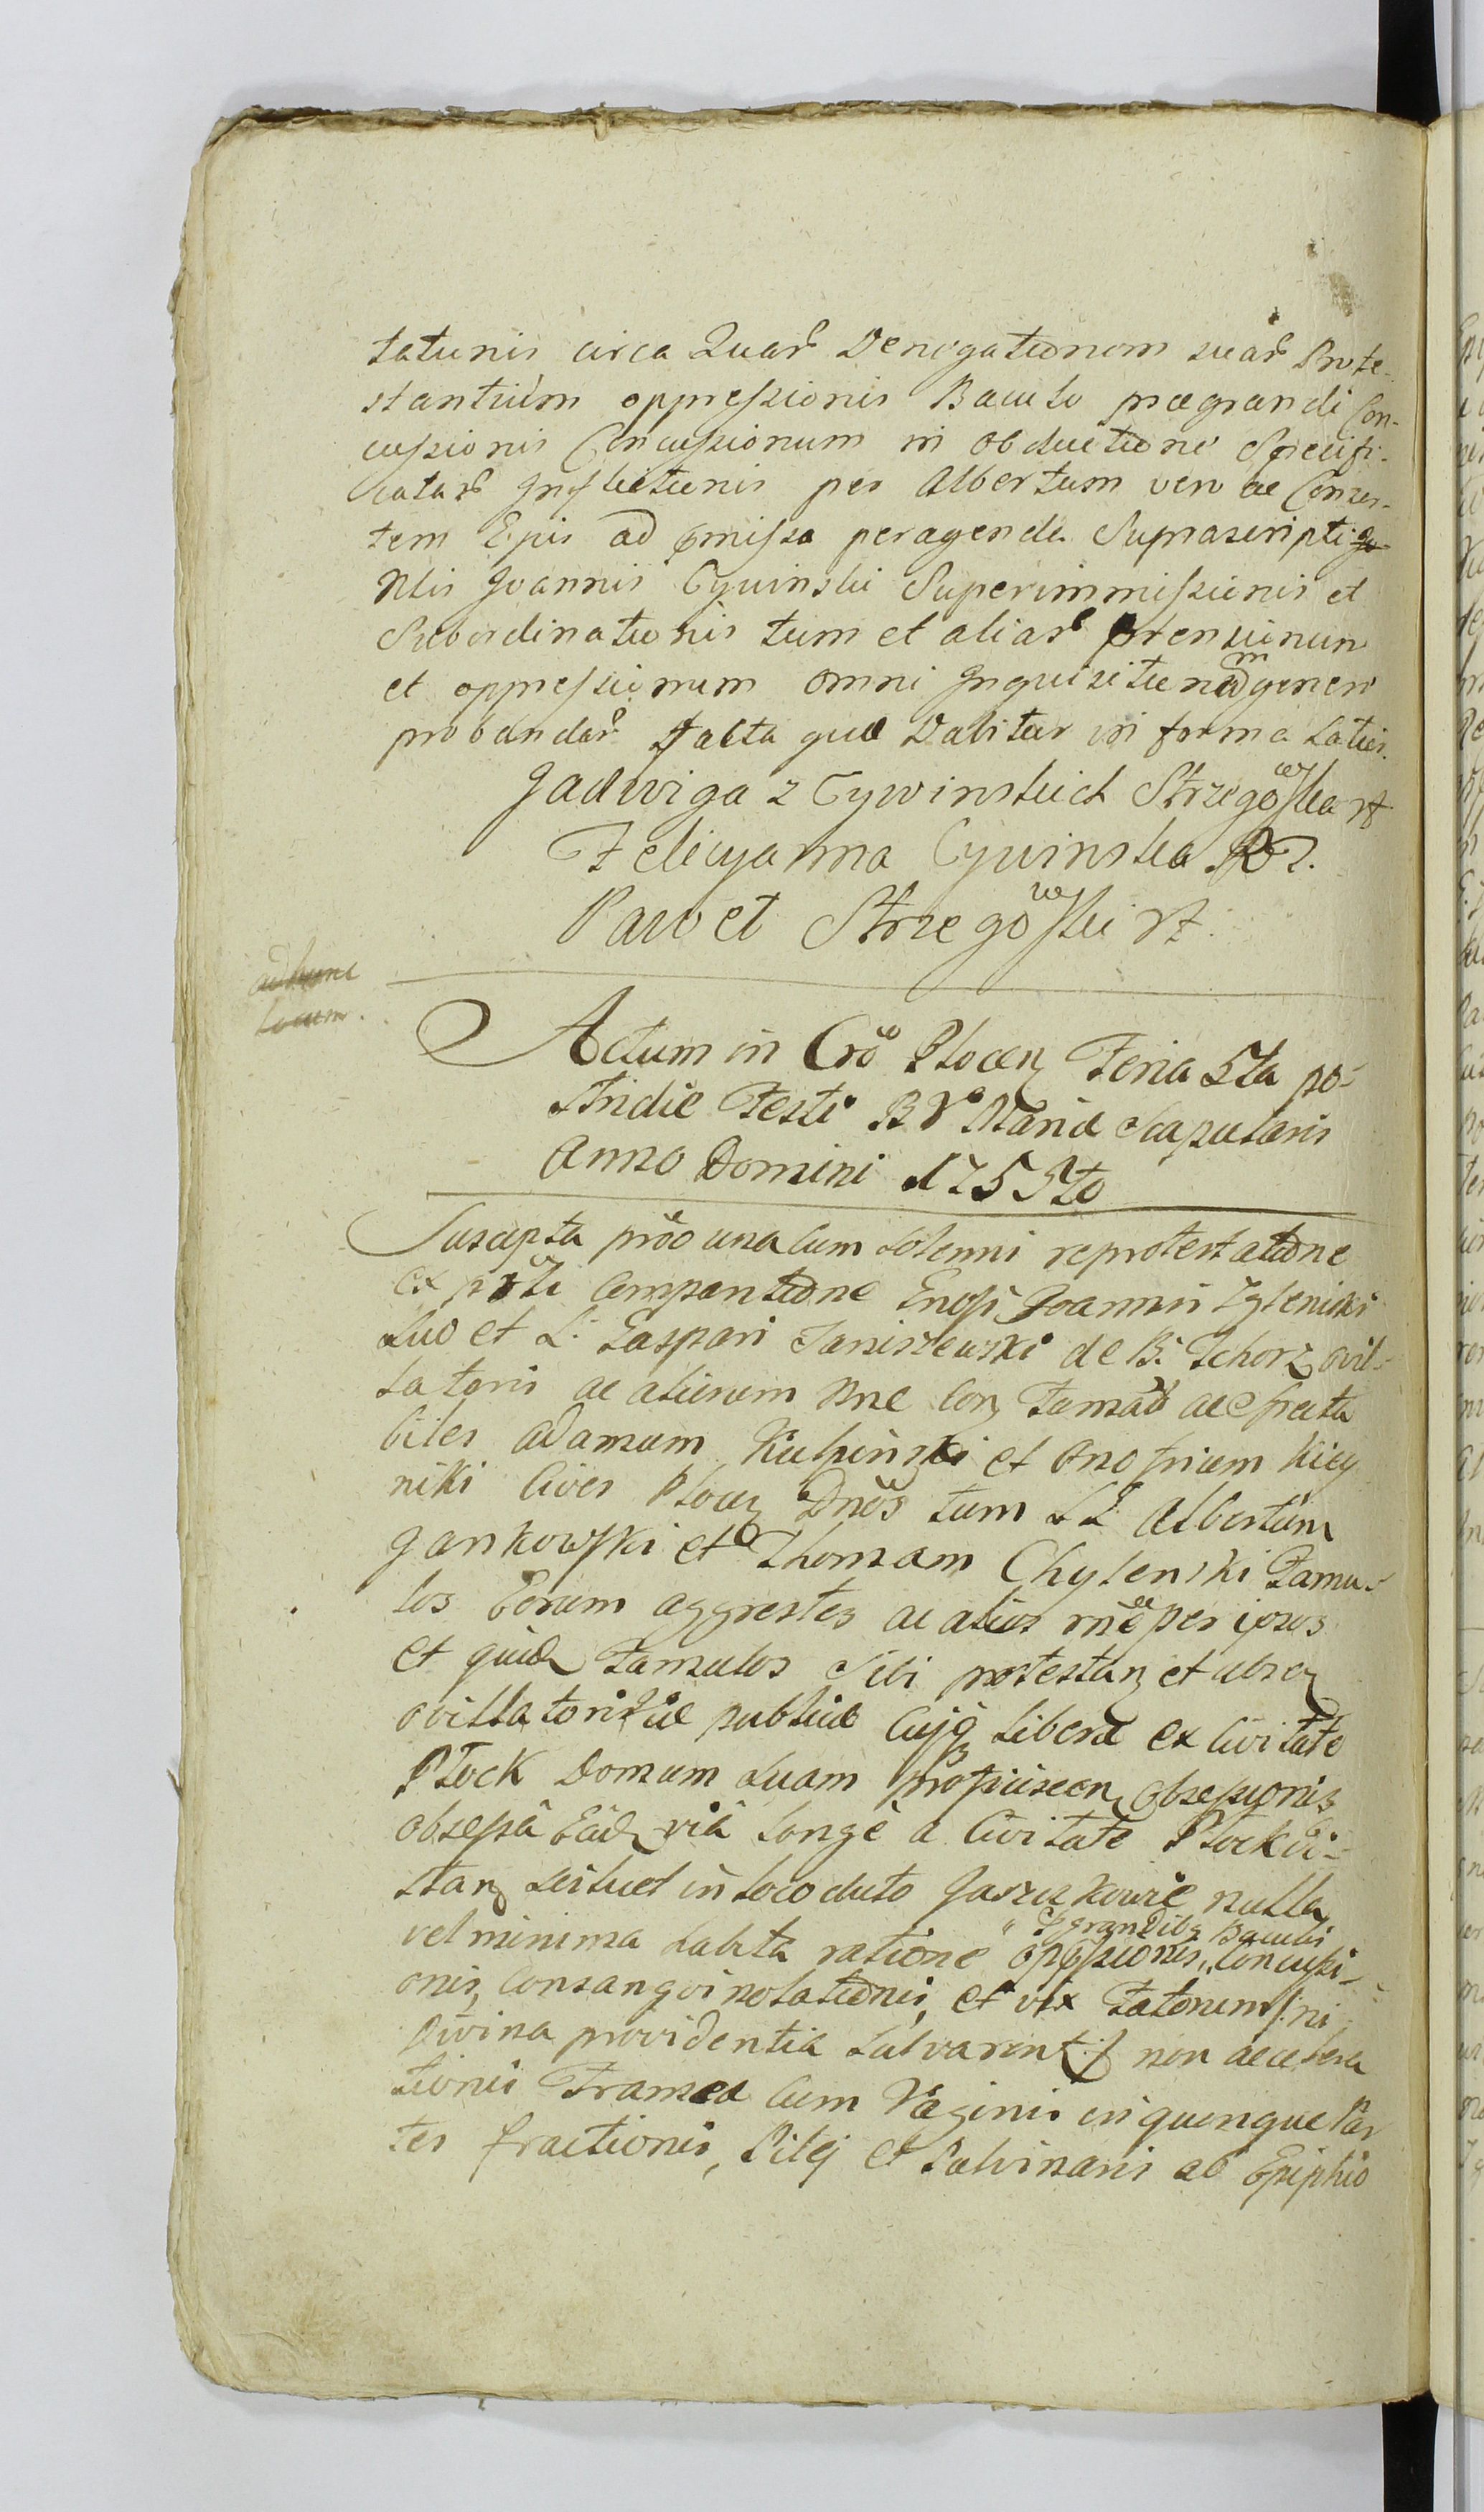 tationis circa Quar Derogationem suar Prote-
stantium oppressionis Baculo praegrandi Con-
cussionis Concussionum in Obductione Specifi-
catar Inflictionis per Albertum vero ac Consor-
tem Ejus ad pmissa peragenda Suprascripti
Nlis Joannis Cywinski Superimmissionis et
Subordinationis tum et aliar ptensionum
et oppressionum omni Inquisitionum genere
probandar facta quae Dabitur in forma Latiori
Jadwiga z Cywinskich Strzegowska
Felicyanna Cywinska
Paweł Strzegowski
ad hunc
locum.
Actum in Cro Plocen Feria 5ta po-
stridie Festi B V Mariae Scapularis
Anno Domini 1755to
Suscepta pro una cum Solenni reprotestatione
ex parti comparitione Joannis Zglenicki
Suo et L. Caspari Janiszewski de B. Tchorz ovil-
latoris ac aliorum
biles Adamum Kulpinski et Onofrium
niki Cives Plocen Dnos tum LL Albertum
Jankowski et Thomam Chylenski Famu-
los Eorum aggrestes ac alios per ipsos
et quidem Famulos Sibi protestan et
ovillatori viae publicae Cujq Liberae ex Civitate
Płock Domum Suam obsessionis
obsessa Ead via longe a Civitate Płock di-
stan scilicet in loco dicto nulla
vel minima habita ratione oppssionis, pgrandibq Baculis Concussi-
onis, Consangvinolationis, et vix ni
Divina providentia Salvarent non
tionis Frameae cum Vaginis in quinque Par
tes fractionis, Pilej et Pulvinaris ab Ephippio